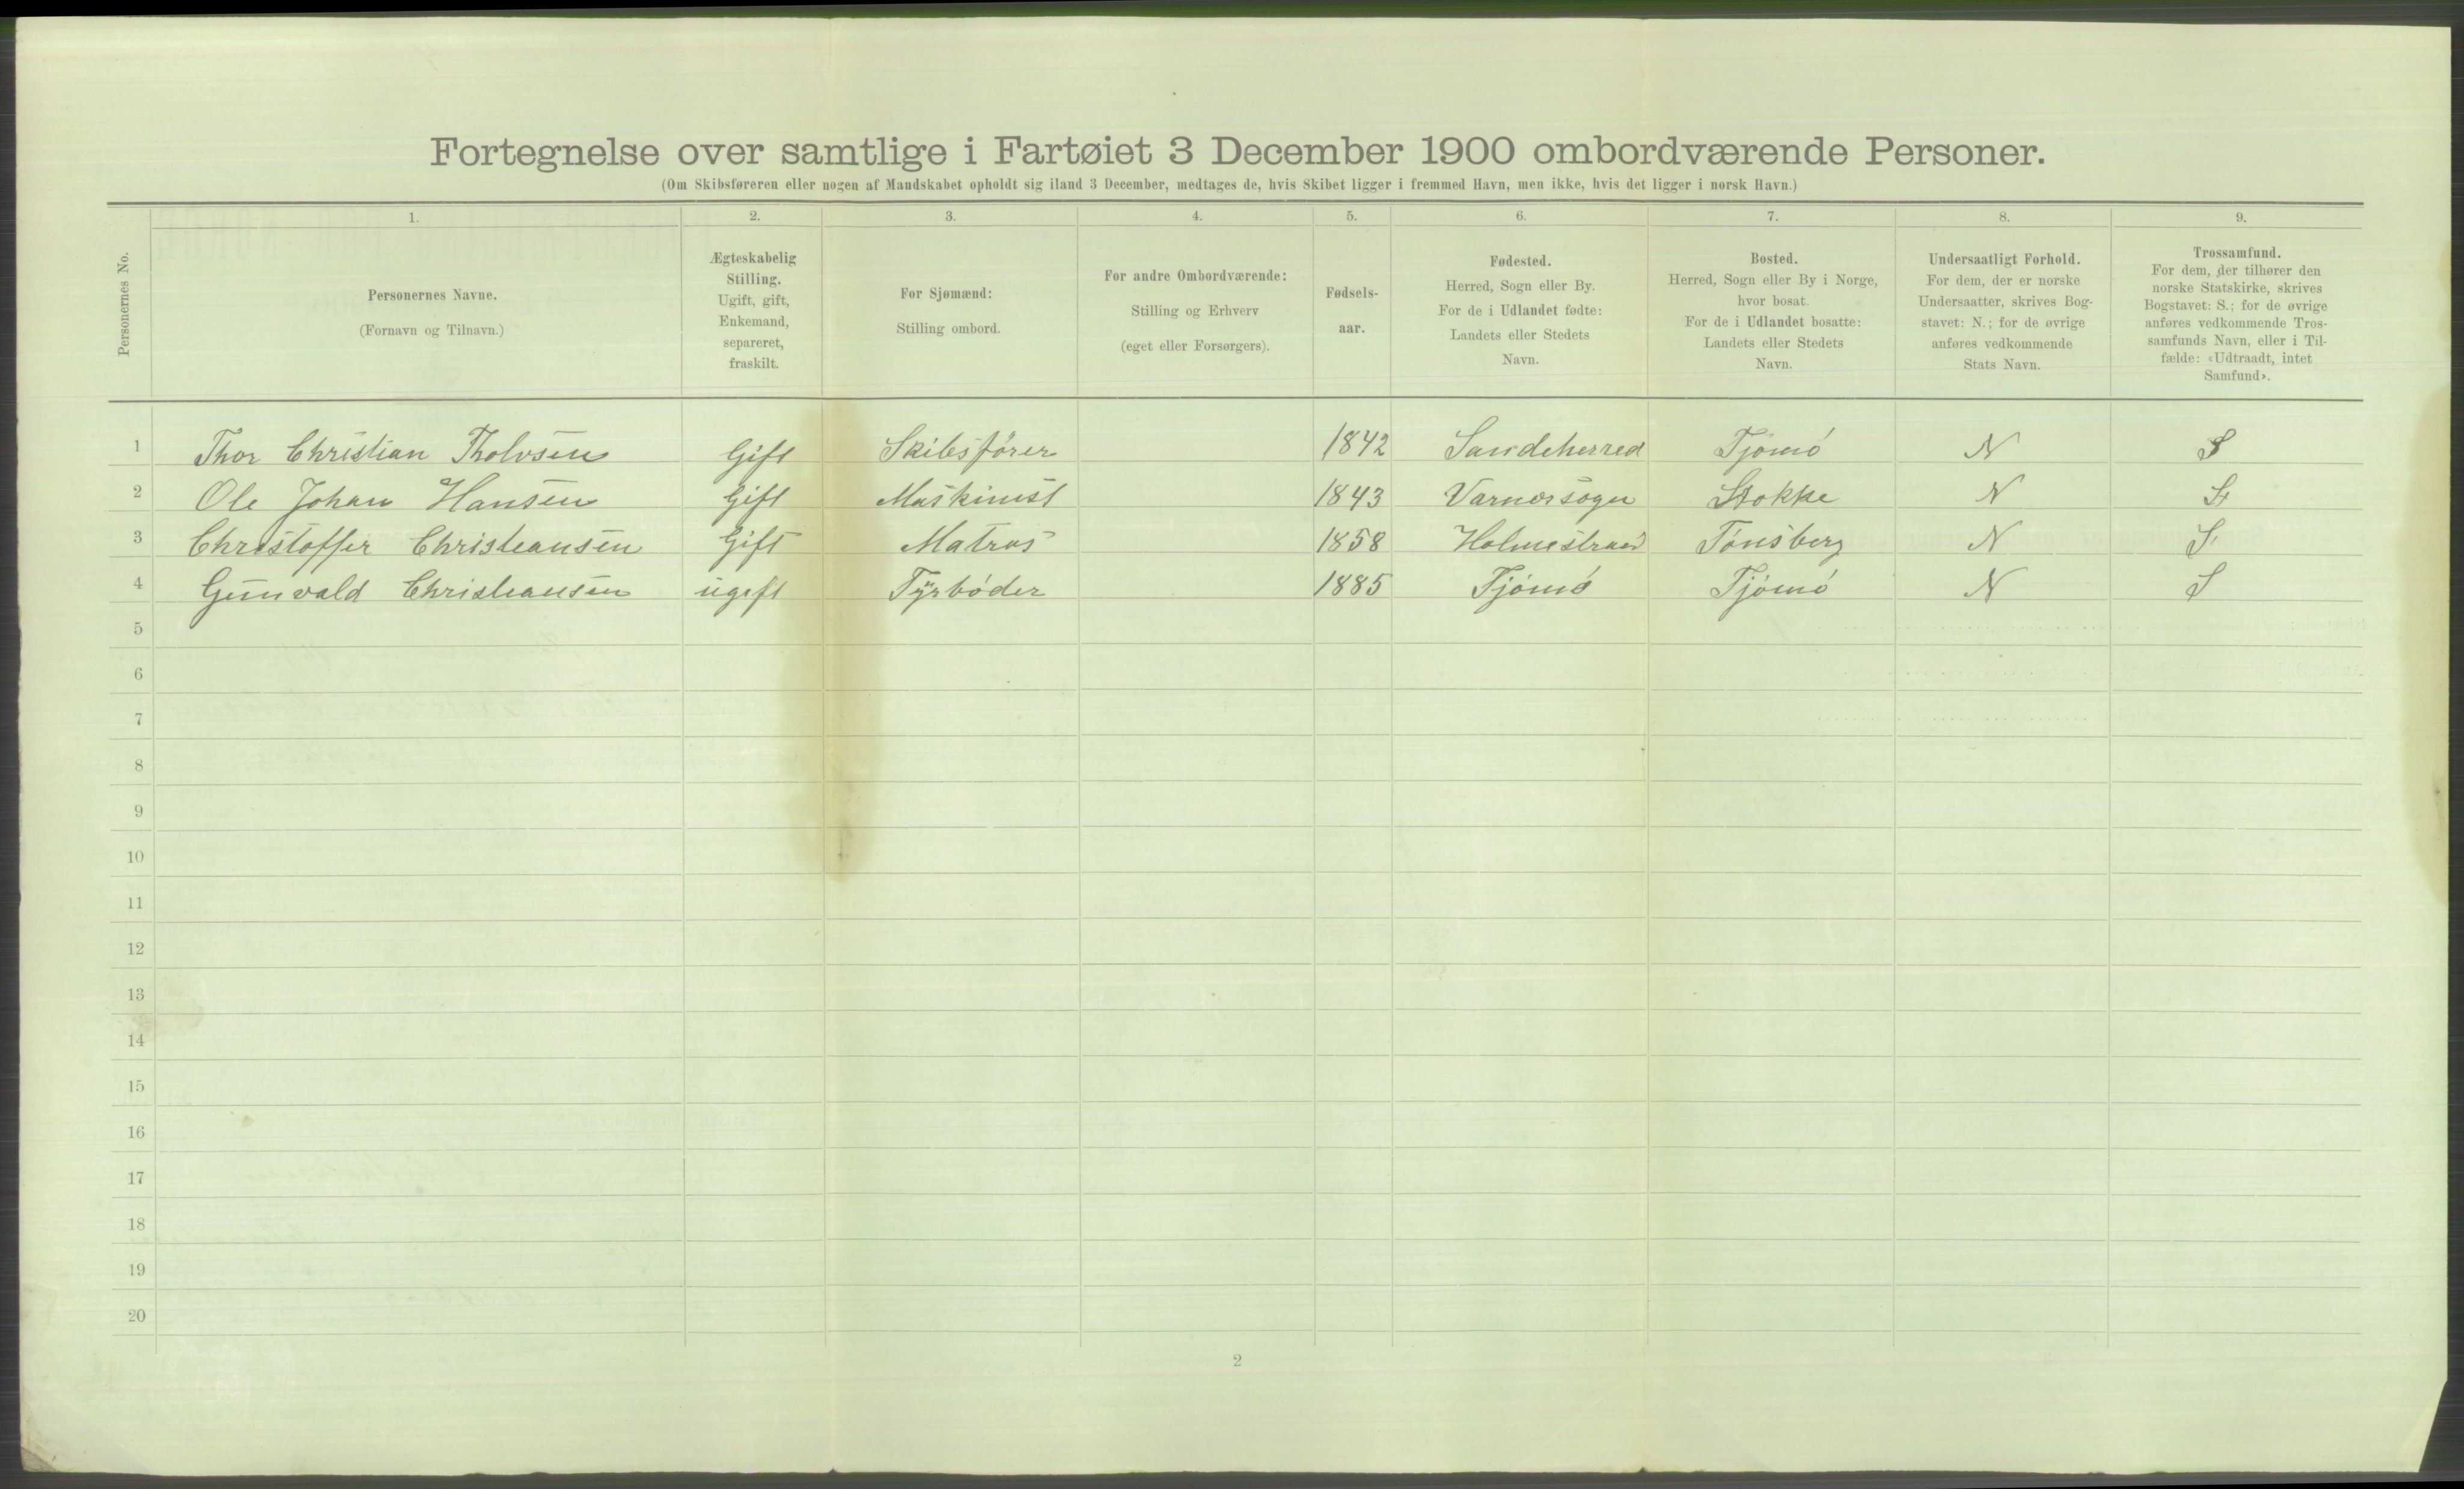 Fortegnelse over samtlige i Fartøiet 3 December 1900 ombordværende Personer.
(Om Skibsføreren eller nogen af Mandskabet opholdt sig iland 3 December, medtages de, hvis Skibet ligger i fremmed Havn, men ikke, hvis det ligger i norsk Havn.)
Personernes No.
1. 2. 3. 4. 5. 6. 7. 8. 9.
Personernes Navne.
(Fornavn og Tilnavn.)
Ægteskabelig
Stilling.
Ugift, gift,
Enkemand,
separeret,
fraskilt.
For Sjømænd:
Stilling ombord.
For andre Ombordværende:
Stilling og Erhverv
(eget eller Forsørgers).
Fødsels-
aar.
Fødested.
Herred, Sogn eller By.
For de i Udlandet fødte:
Landets eller Stedets
Navn.
Bosted.
Herred, Sogn eller By i Norge,
hvor bosat.
For de i Udlandet bosatte:
Landets eller Stedets
Navn.
Undersaatligt Forhold.
For dem, der er norske
Undersaatter, skrives Bog-
stavet: N.; for de øvrige
anføres vedkommende
Stats Navn.
Trossamfund.
For dem, der tilhører den
norske Statskirke, skrives
Bogstavet: S.; for de øvrige
anføres vedkommende Tros-
samfunds Navn, eller i Til-
fælde: «Udtraadt, intet
Samfund».
1 Thor Christian Tholvsen Gift Skibsfórer 1842 Sandeherred Tjómó N S
2 Ole Johan Hansen Gift Maskinist 1843 Varnæssogn Stokke N S
3 Christoffer Christeansen Gift Matros 1858 Holmestrand Tónsberg N S
4 Gunvald Christeansen ugift Fyrbóder 1885 Tjómó Tjómó N S
5
6
7
8
9
10
11
12
13
14
15
16
17
18
19
20
2